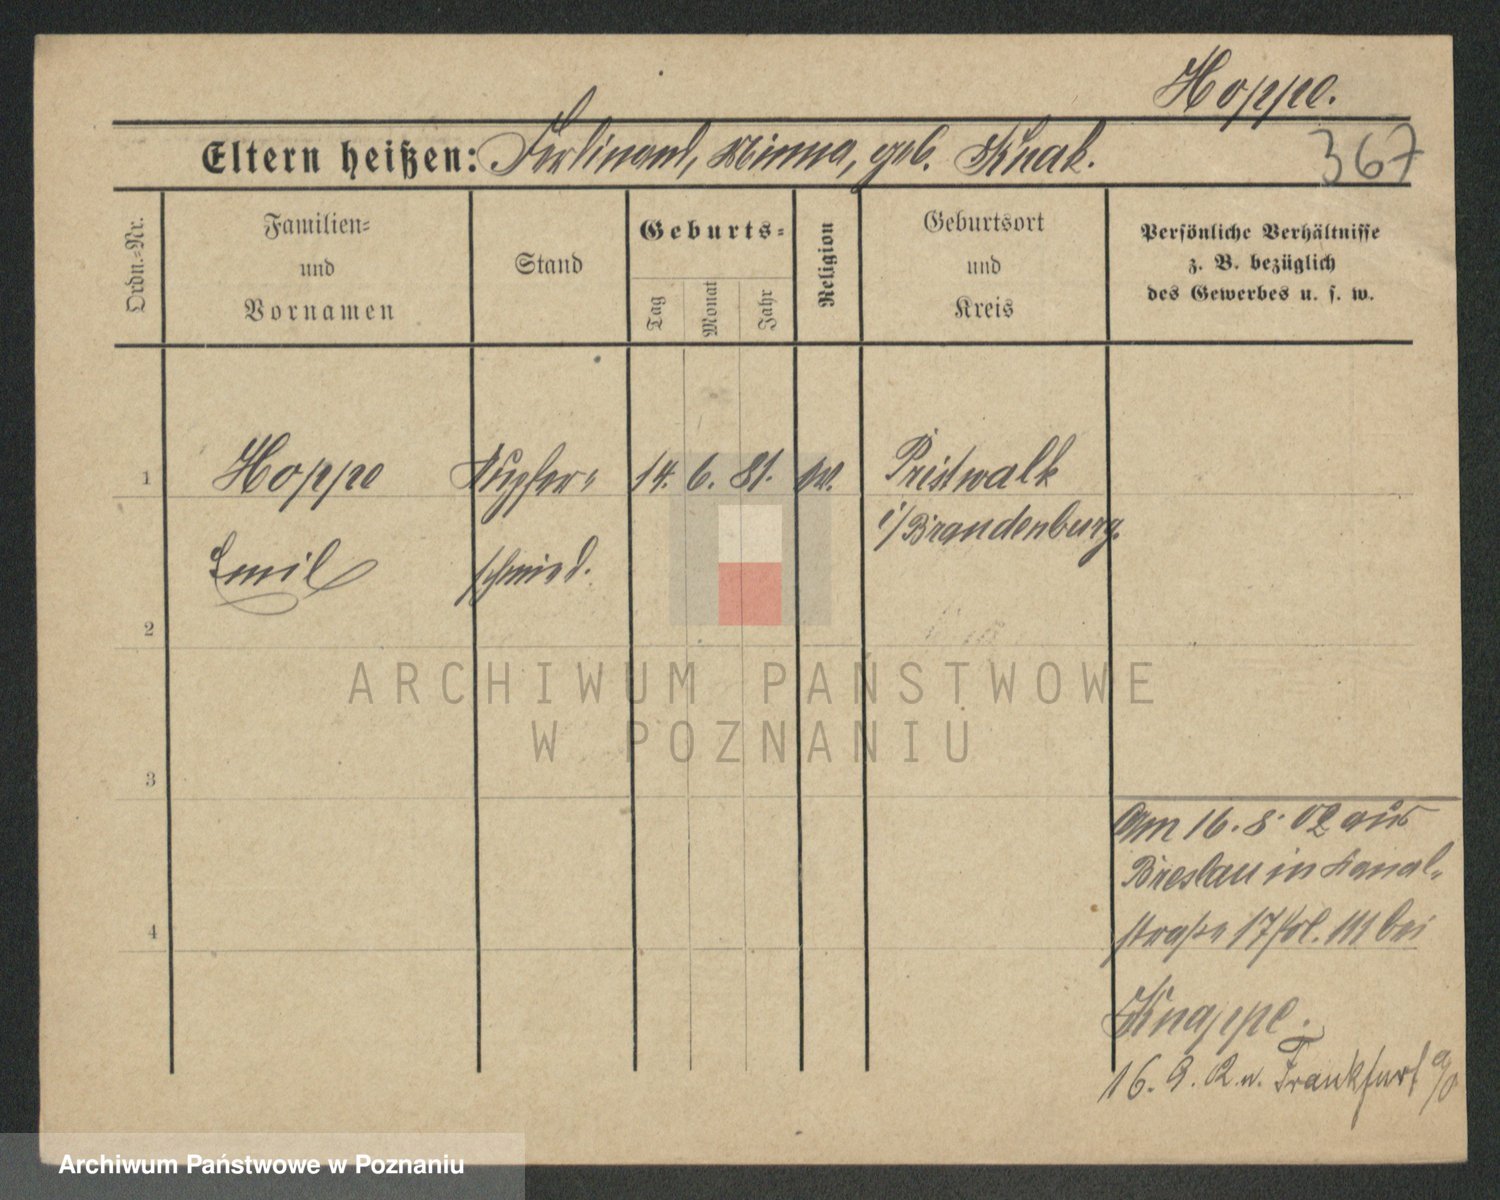 Hoppe.
Eltern heißen: Ferdinand, Minna, geb. Knak.
367
Ordn.=Nr.
Familien=
und
Vornamen
Stand
Geburts=
Tag
Monat
Jahr
Religion
Geburtsort
und
Kreis
Persönliche Verhältnisse
z. B. bezüglich
des Gewerbes u. s. w.
1
Hoppe Kupfer= 14. 6. 81. ev. Pristwalk
i/Brandenburg.
Emil schmied.
2
3
4
Am 16. 8. 02 aus
Breslau in Kanal=
straße 17 III bei
Knappe.
16. 9. 2. n. Frankfurt a/O
ARCHIWUM PAŃSTWOWE
W POZNANIU
Archiwum Państwowe w Poznaniu